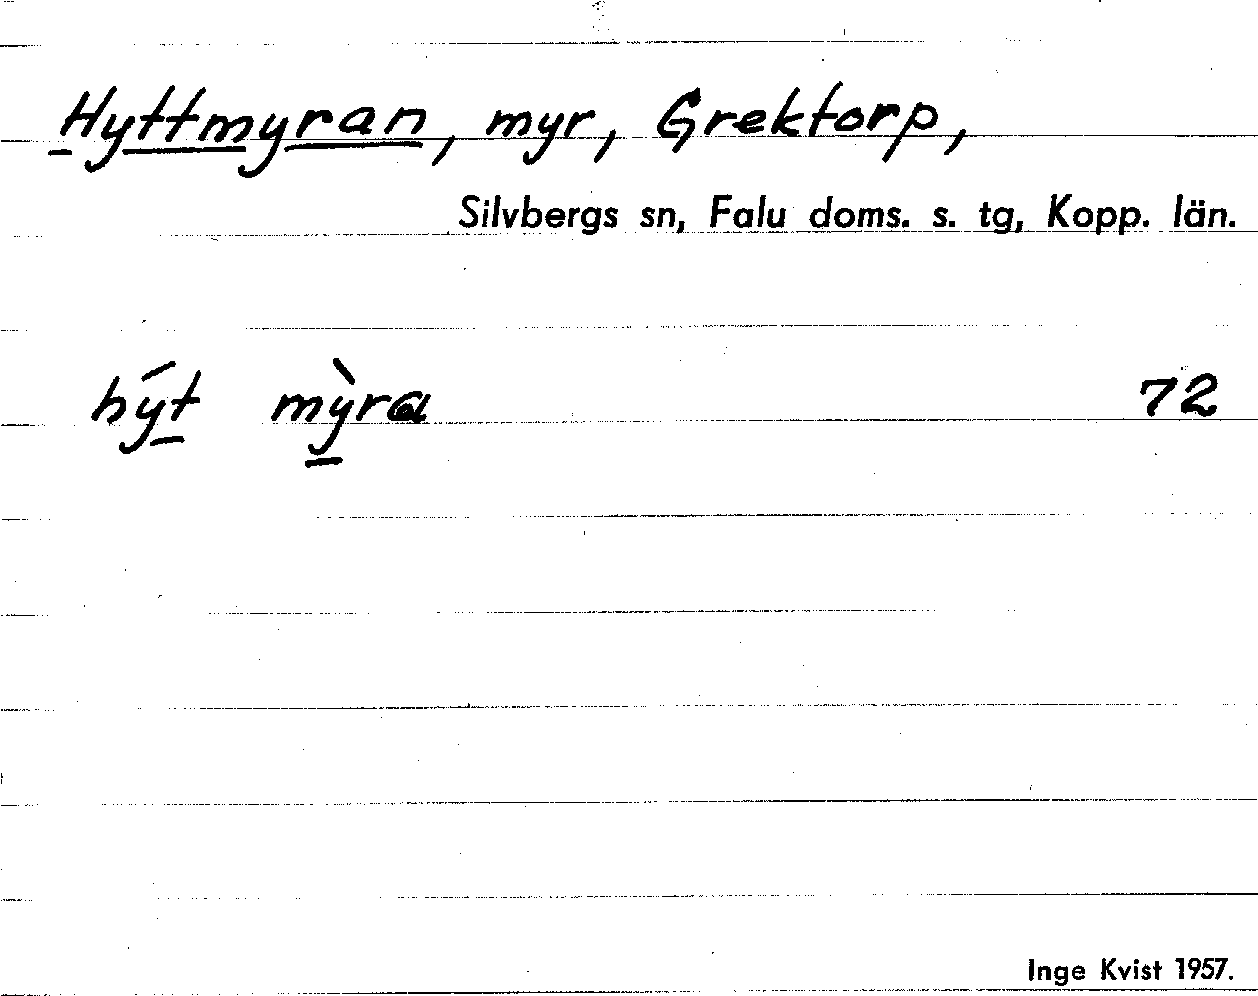 Hyttmyran, myr, Grektorp,
Silvbergs sn, Falu doms. s. tg, Kopp. län.
hýt mỳra 72
Inge Kvist 1957.